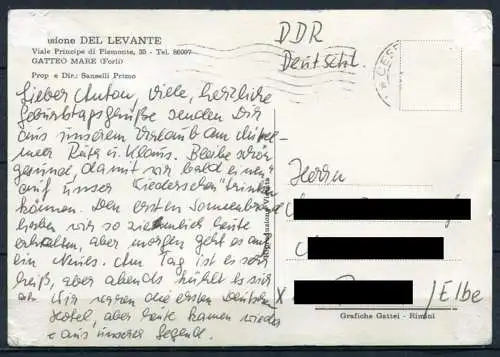 usione DEL LEVANTE
Viale Principe di Piemonte, 30 - Tel. 86097
GATTEO MARE (Forlì)
Prop e Dir.: Sanselli Primo
DDR
Deutschl.
CESE
Lieber Anton, viele, herzliche
Geburtstagsgrüße senden Dir
aus unserem Urlaub am Mittel-
meer Ruth u. Klaus. Bleibe schön
gesund, damit wir bald einen
auf unser Wiedersehen trinken
können. Den ersten Sonnenbrand
haben wir so ziemlich heute
erhalten, aber morgen geht es auf
ein Neues. Am Tag ist es sehr
heiß, aber abends kühlt es sich
ab. Wir waren die ersten Deutschen
Hotel, aber heute kamen wieder
e aus unserer Gegend.
Riproduzione Vietata
Herrn
X
/Elbe
Grafiche Gattei - Rimini